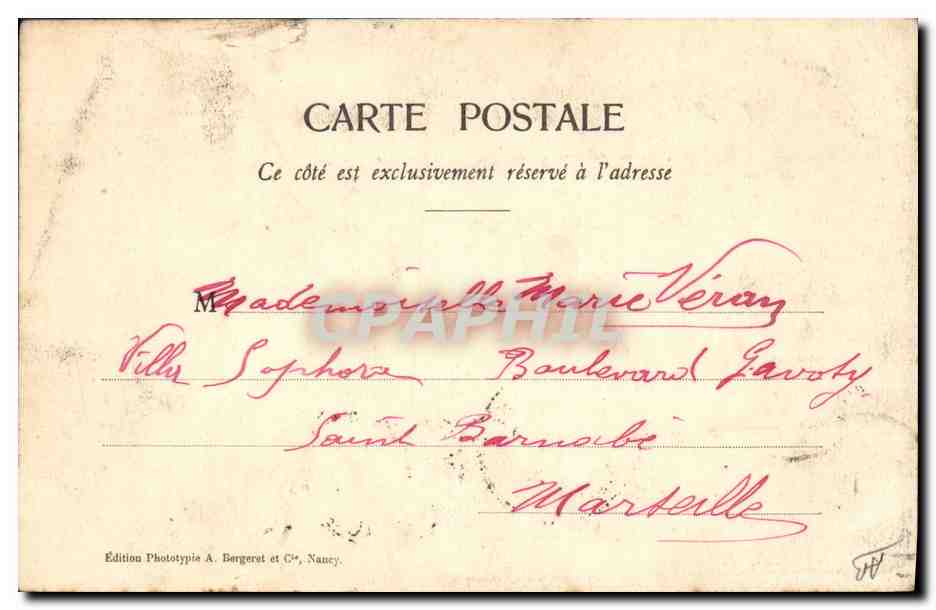 CARTE POSTALE
Ce côté est exclusivement réservé à l'adresse
Mademoiselle Marie Véran
CPAPHIL
Villa Sophora Boulevard Gavoty
Saint Barnabé
Marseille
Édition Phototypie A. Bergeret et Cie, Nancy.